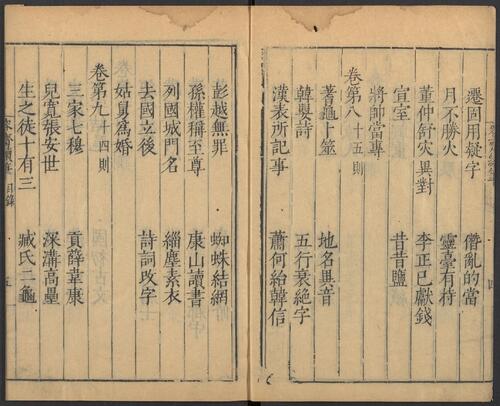 遷固用疑字　僭亂的當
月不勝火　靈臺有持
董仲舒災異對　李正己獻錢
宣室　昔昔鹽
將帥當專
卷第八 十五則
蓍龜卜筮　地名異音
韓嬰詩　五行衰絕字
漢表所記事　蕭何紿韓信
彭越無罪　蜘蛛結網
孫權稱至尊　康山讀書
列國城門名　緇塵素衣
去國立後　詩詞改字
姑舅爲婚
卷第九 十四則
三家七穆　貢薛韋康
兒寬張安世　深溝高壘
生之徒十有三　臧氏二龜
目錄　五